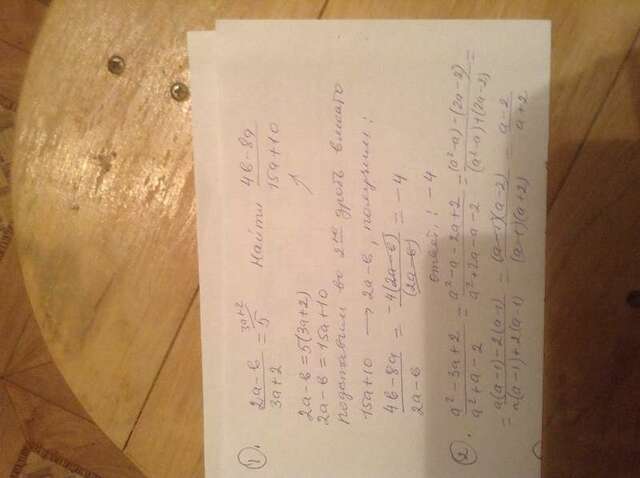 ① . (2a-в)/(3a+2) = 5 3a+2 Найти (4в-8a)/(15a+10)
2a-в = 5(3a+2)
2a-в = 15a+10
подставим во 2ую дробь вместо
15a+10 → 2a-в, получим:
(4в-8a)/(2a-в) = (-4(2a-в))/((2a-в)) = -4
Ответ: -4
② . (a²-3a+2)/(a²+a-2) = (a²-a-2a+2)/(a²+2a-a-2) = ((a²-a)-(2a-2))/((a²-a)+(2a-2)) =
= (a(a-1)-2(a-1))/(a(a-1)+2(a-1)) = ((a-1)(a-2))/((a-1)(a+2)) = (a-2)/(a+2)